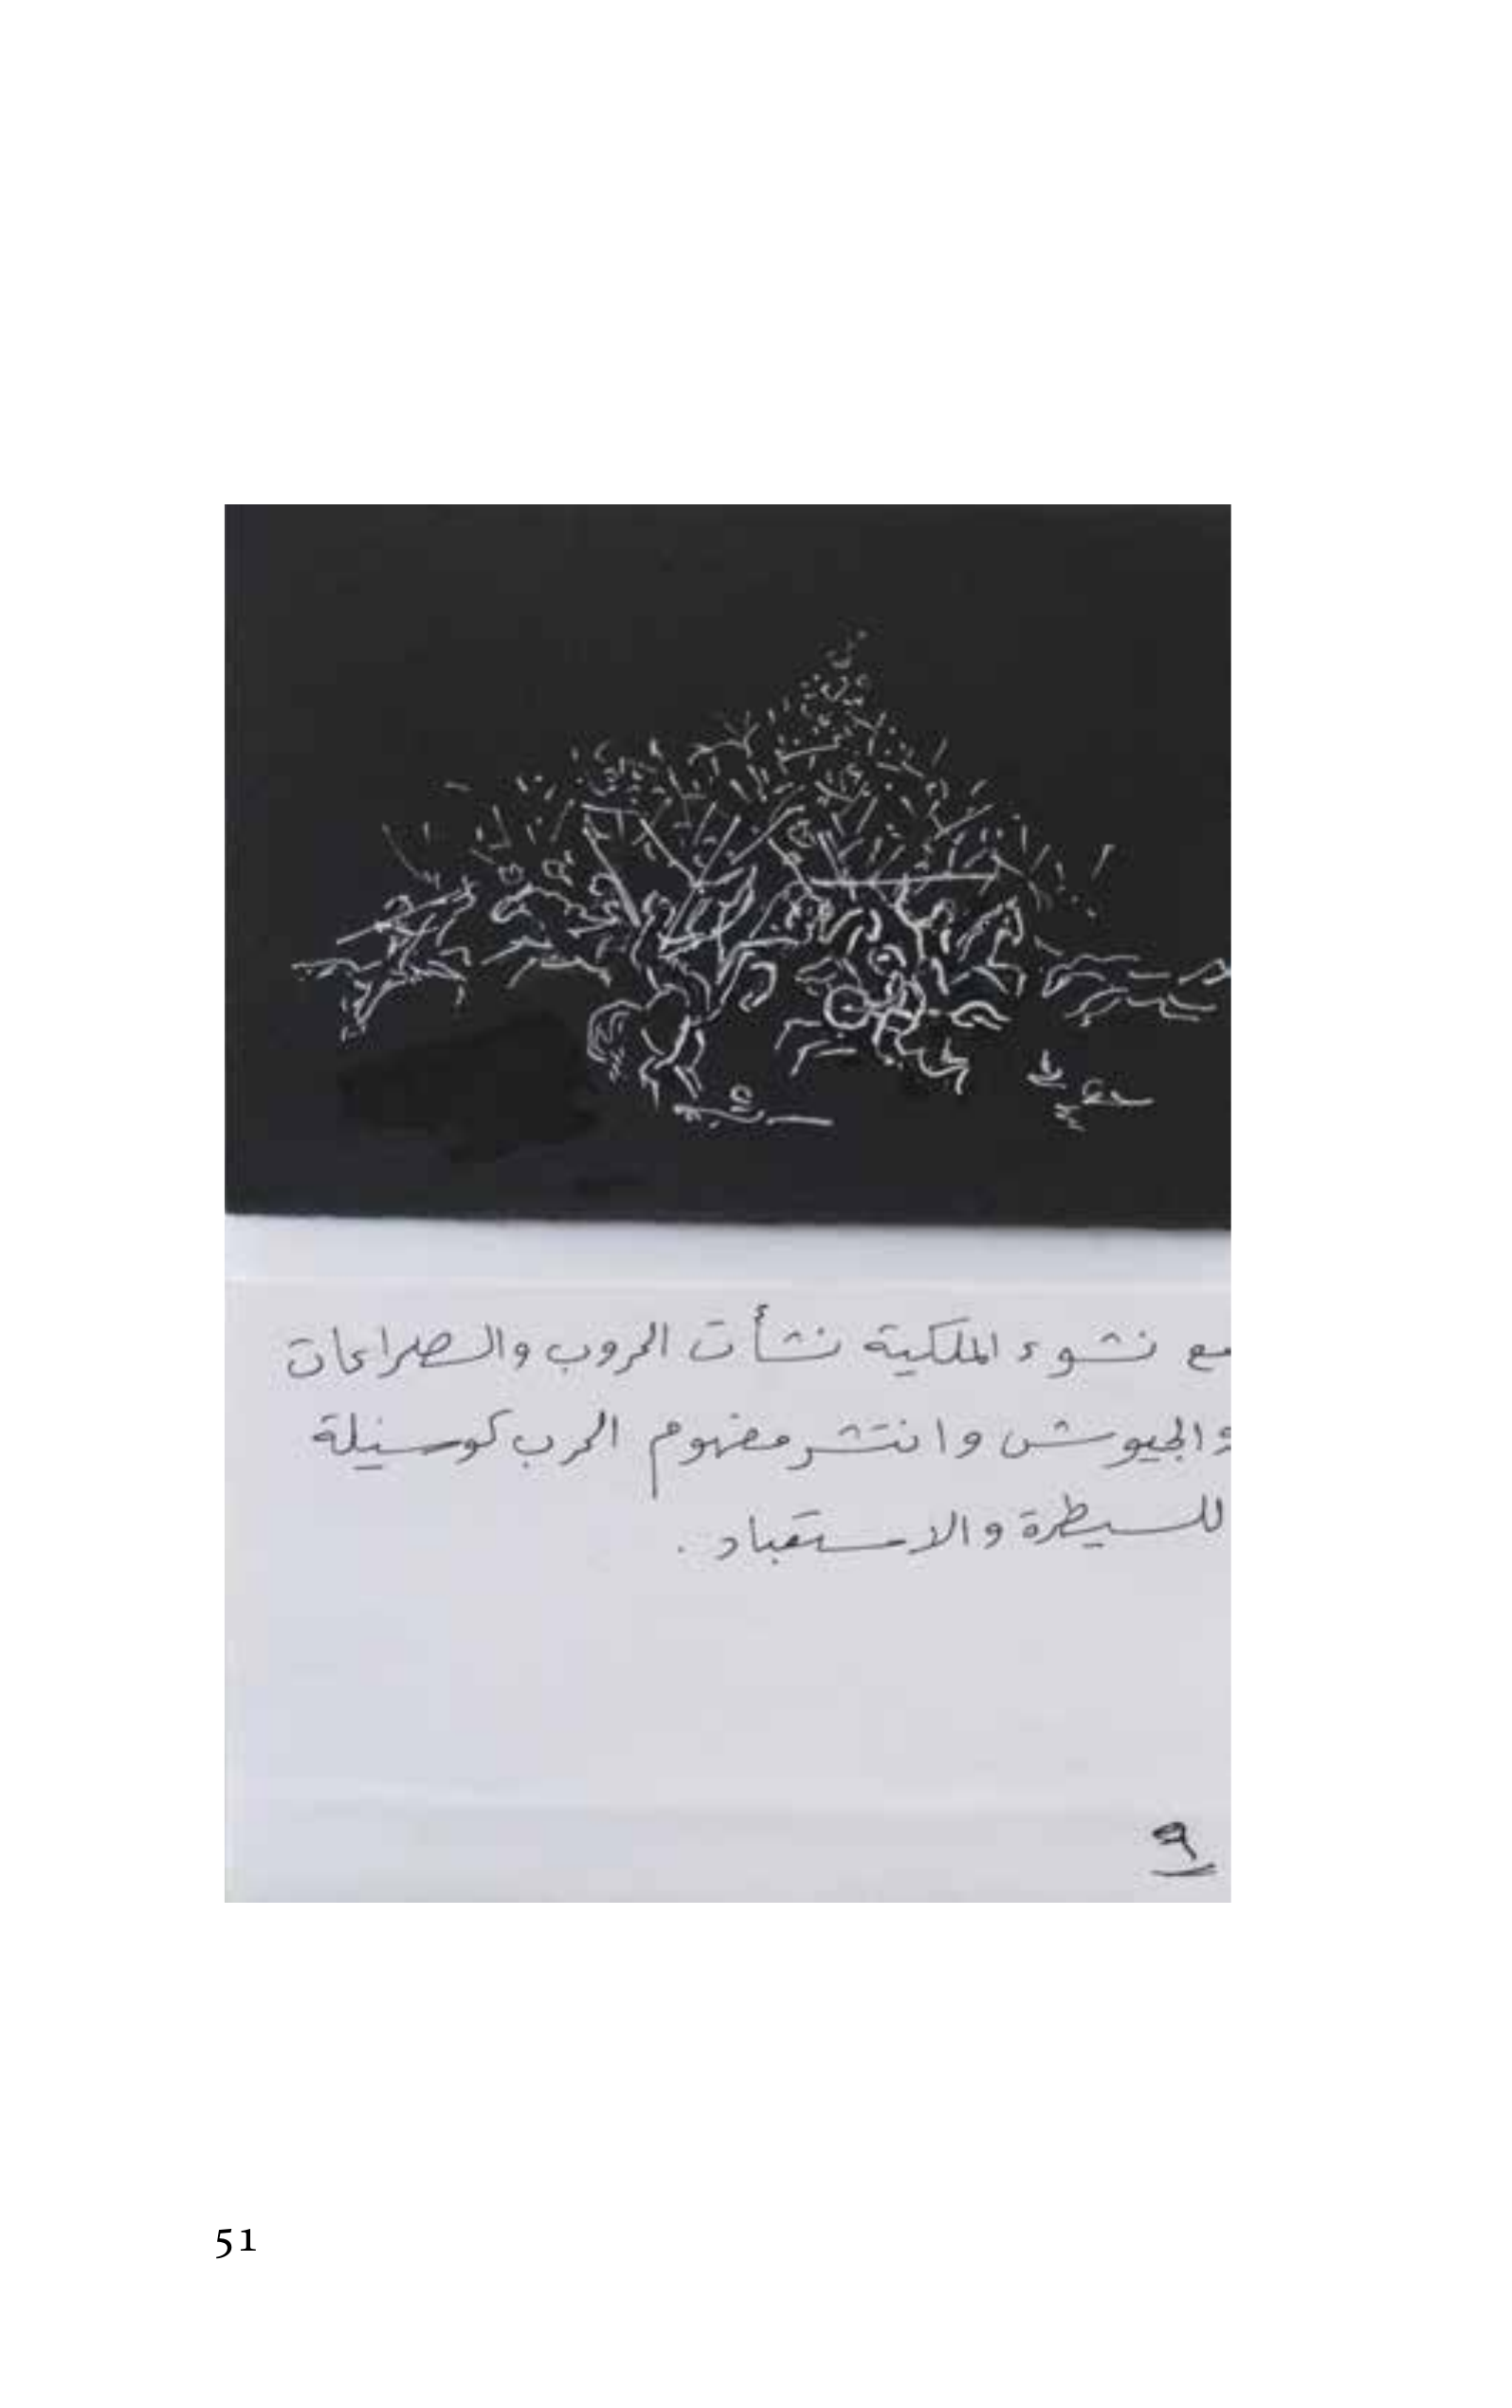 مع نشوء الملكية نشأت الحروب والصراعات
والجيوش وانتشر مفهوم الحرب كوسيلة
للسيطرة والاستعباد .
٩
51